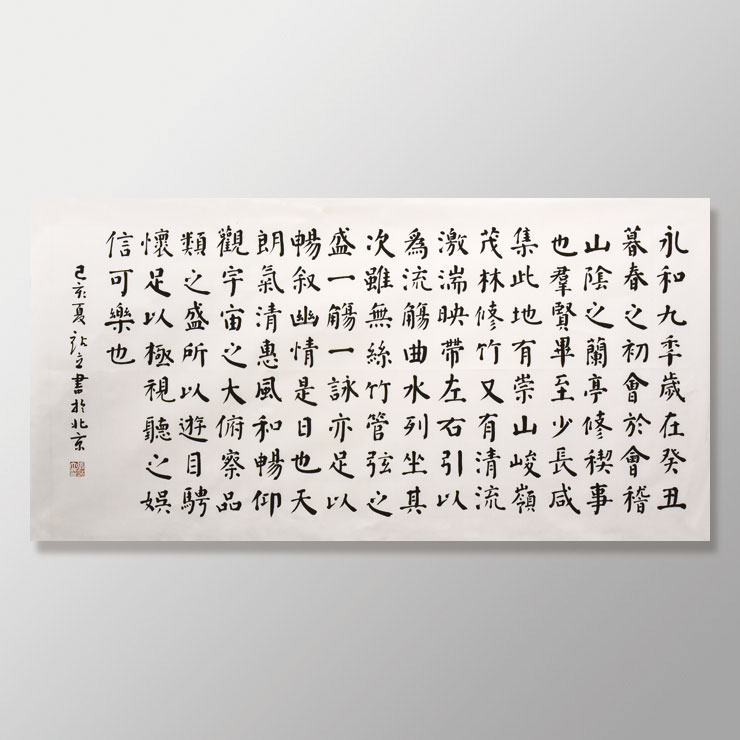 永和九年歲在癸丑
暮春之初會於會稽
山陰之蘭亭修禊事
也羣賢畢至少長咸
集此地有崇山峻嶺
茂林修竹又有清流
激湍映帶左右引以
為流觴曲水列坐其
次雖無絲竹管弦之
盛一觴一詠亦足以
暢叙幽情是日也天
朗氣清惠風和暢仰
觀宇宙之大俯察品
類之盛所以遊目騁
懷足以極視聽之娛
信可樂也
己亥夏 立書於北京